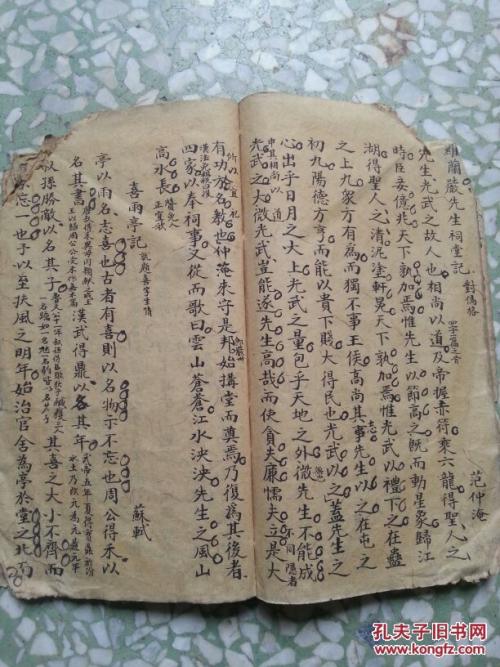 嚴先生祠堂記 對偶格 范仲淹
先生光武之故人也相尚以道及帝握赤符乘六龍得聖人之
時臣妾億兆天下孰加焉惟先生以節高之既而動星象歸江
湖得聖人之清泥塗軒冕天下孰加焉惟光武以禮下之在蠱
之上九衆方有為而獨不事王侯高尚其事先生以之在屯之
初九陽德方亨而能以貴下賤大得民也光武以之蓋先生之
心出乎日月之大上光武之量包乎天地之外微先生不能成
光武之大微光武豈能遂先生高哉而使貪夫廉懦夫立是大
有功於名教也仲淹来守是邦始搆堂而奠焉乃復為其後者
四家以奉祠事又從而歌曰雲山蒼蒼江水泱泱先生之風山
高水長
喜雨亭記 蘇軾
亭以雨名志喜也古者有喜則以名物示不忘也周公得禾以
名其書 漢武得鼎以名其年
叔孫勝敵以名其子 其喜之大小不齊而
不忘一也予以至扶風之明年始治官舍為亭於堂之北而
孔夫子旧书网
kongfz.com